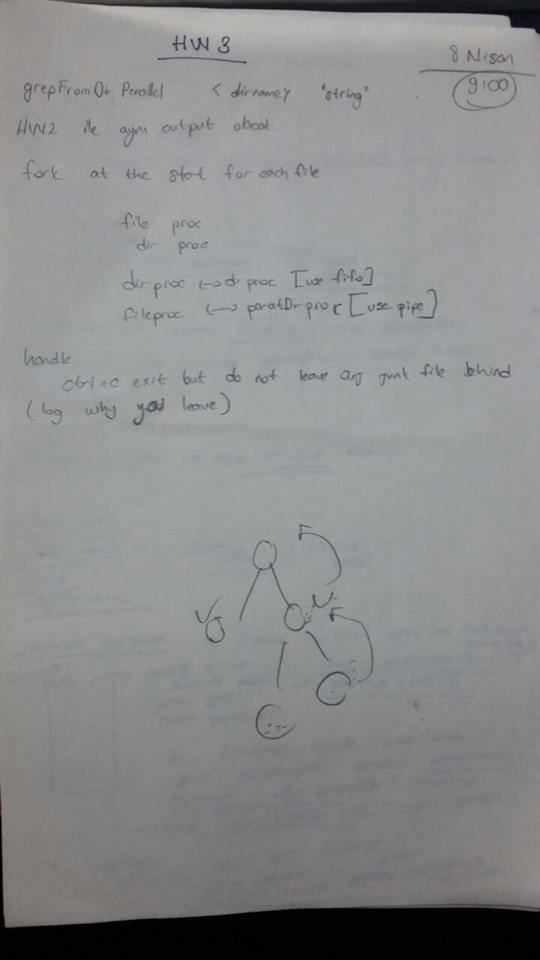 HW 3
8 Nisan
9:00
grepFromDir Parallel < dirname> "string"
HW2 ile aynı output olacak
fork at the start for each file
file proc
dir proc
dir proc ↔ dir proc [use fifo]
fileproc ↔ paratDir proc [use pipe]
handle
ctrl+c exit but do not leave any junk file behind
(log why you leave)